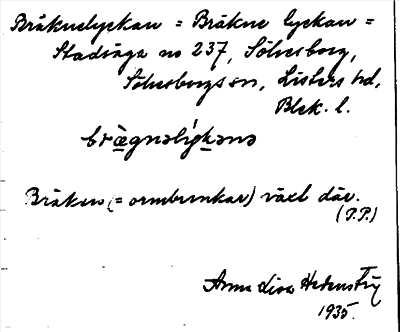 Bräknelyckan = Bräkne lyckan =
Stadsäga no 237, Sölvesborg,
Sölvesborgs sn, Listers hd,
Blek. l.
bræ̀gnəlýkanə
Bräken (= ormbunkar) växt där.
(P.P.)
Anna Lisa
1935.